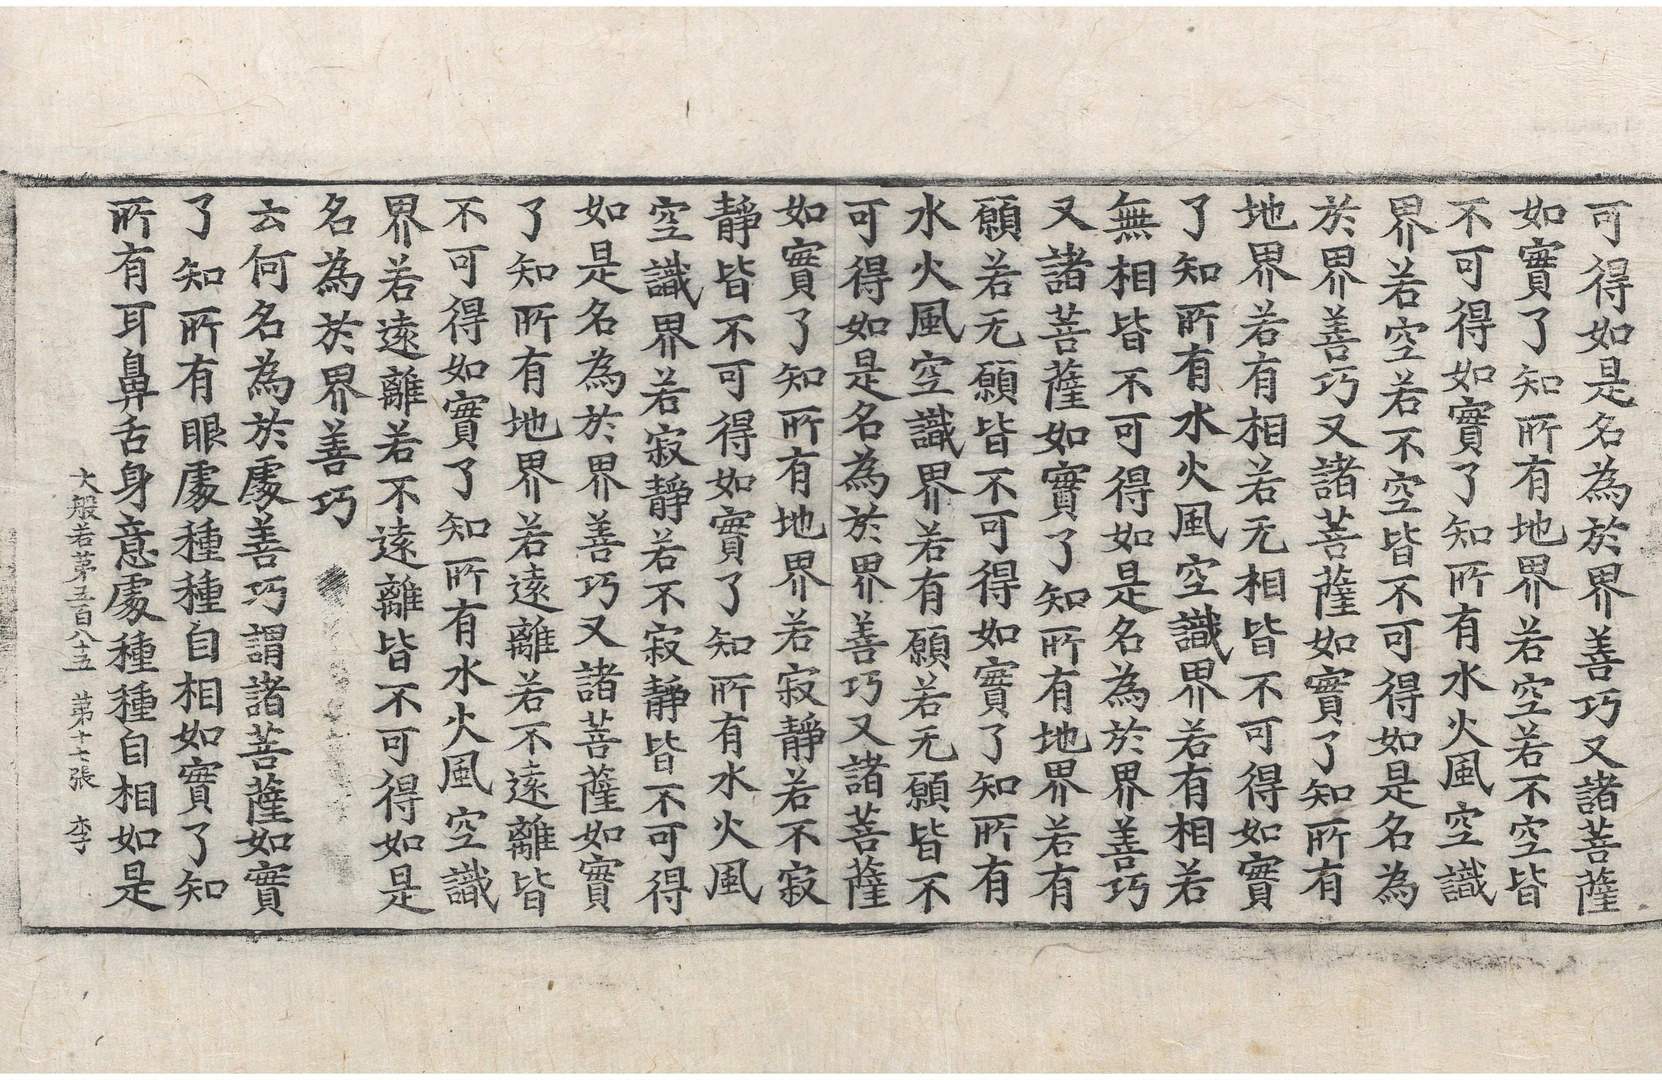 可得如是名為於界善巧又諸菩薩
如實了知所有地界若空若不空皆
不可得如實了知所有水火風空識
界若空若不空皆不可得如是名為
於界善巧又諸菩薩如實了知所有
地界若有相若无相皆不可得如實
了知所有水火風空識界若有相若
無相皆不可得如是名為於界善巧
又諸菩薩如實了知所有地界若有
願若无願皆不可得如實了知所有
水火風空識界若有願若无願皆不
可得如是名為於界善巧又諸菩薩
如實了知所有地界若寂靜若不寂
靜皆不可得如實了知所有水火風
空識界若寂靜若不寂靜皆不可得
如是名為於界善巧又諸菩薩如實
了知所有地界若遠離若不遠離皆
不可得如實了知所有水火風空識
界若遠離若不遠離皆不可得如是
名為於界善巧
云何名為於處善巧謂諸菩薩如實
了知所有眼處種種自相如實了知
所有耳鼻舌身意處種種自相如是
大般若第五百八十五 第十七張 李